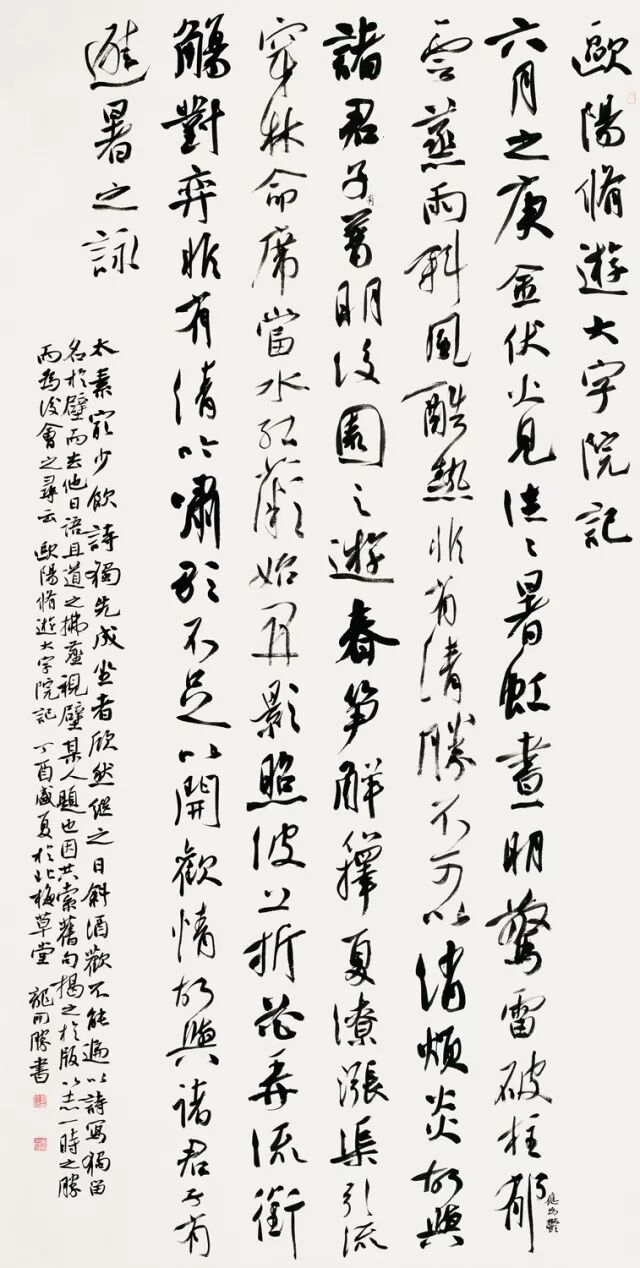 歐陽脩遊大字院記
六月之庚金伏火見往々暑虹晝明驚雷破柱郁應為鬱
雲蒸雨斜風酷熱非有清勝不可以消煩炎故與
諸君子有普明後園之遊春笋解籜夏潦漲渠引流
穿林命席當水紅薇始開影照波上折花弄流銜
觴對弈非有清吟嘯歌不足以開歡情故與諸君子有
避暑之詠
太素最少飲詩獨先成坐者欣然繼之日斜酒歡不能遍以詩寫獨留
名於壁而去他日語且道之拂塵視壁某人題也因共索舊句揭之於版以志一時之勝
而為後會之尋云 歐陽脩遊大字院記 丁酉盛夏於北梅草堂 龍開勝書